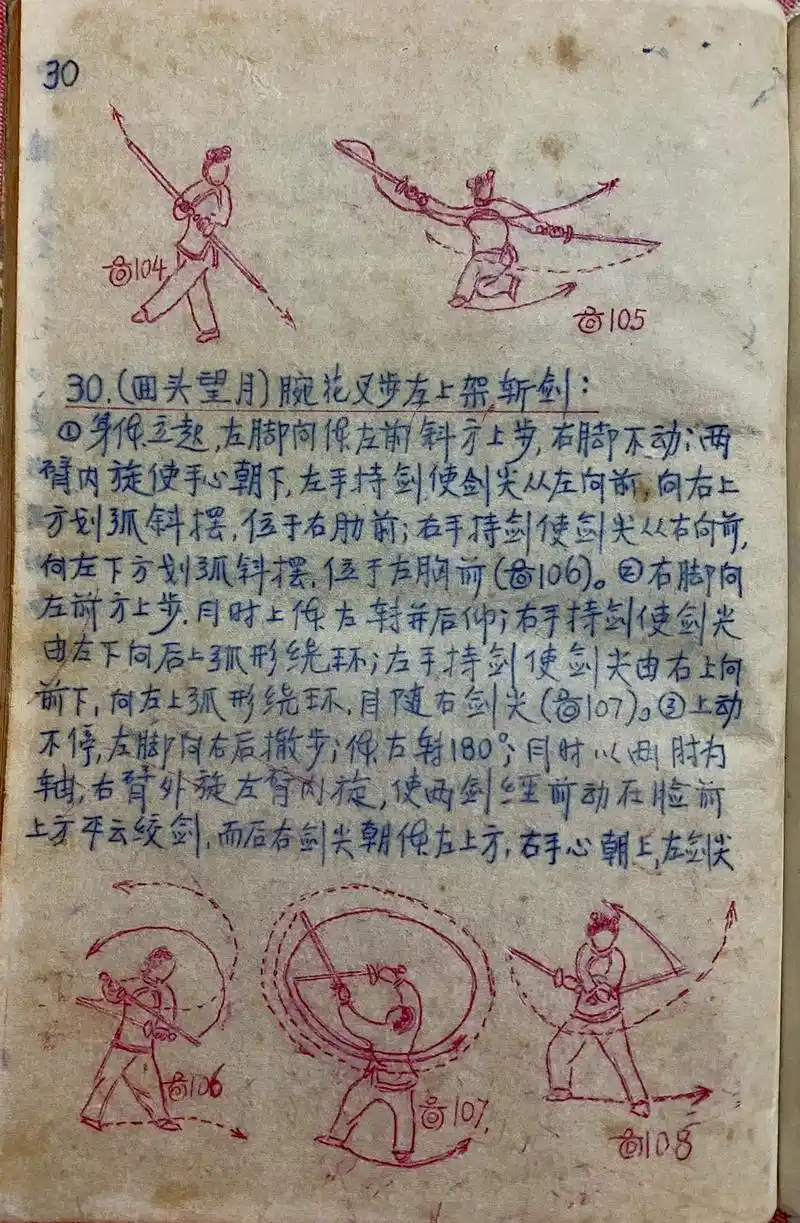 30
图104
图105
30.(回头望月)腕花叉步左上架斩剑:
①身体立起,左脚向体左前斜方上步,右脚不动;两
臂内旋使手心朝下,左手持剑使剑尖从左向前,向右上
方划弧斜摆,位于右肋前;右手持剑使剑尖从右向前,
向左下方划弧斜摆,位于左胸前(图106)。②右脚向
左前方上步.同时上体左转并后仰;右手持剑使剑尖
由左下向后上弧形绕环;左手持剑使剑尖由右上向
前下,向左上弧形绕环,目随右剑尖(图107)。③上动
不停,左脚向右后撤步;体左转180°;同时以两肘为
轴,右臂外旋左臂内旋,使两剑经前动在脸前
上方平云绞剑,而后右剑尖朝体左上方,右手心朝上,左剑尖
图106
图107
图108